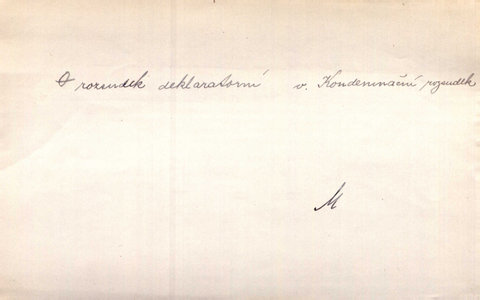 rozsudek deklaratorní v. Kondemnační rozsudek
M